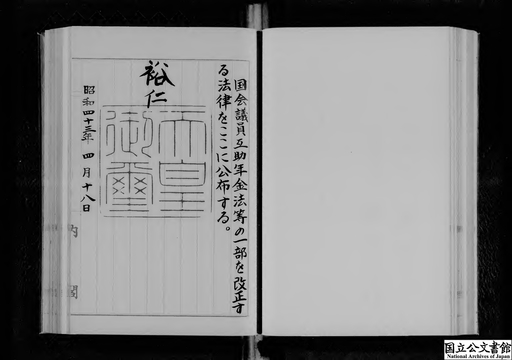 国会議員互助年金法等の一部を改正す
る法律をここに公布する。
裕仁
天皇
御璽
昭和四十三年 四月十八日
内閣
国立公文書館
National Archives of Japan